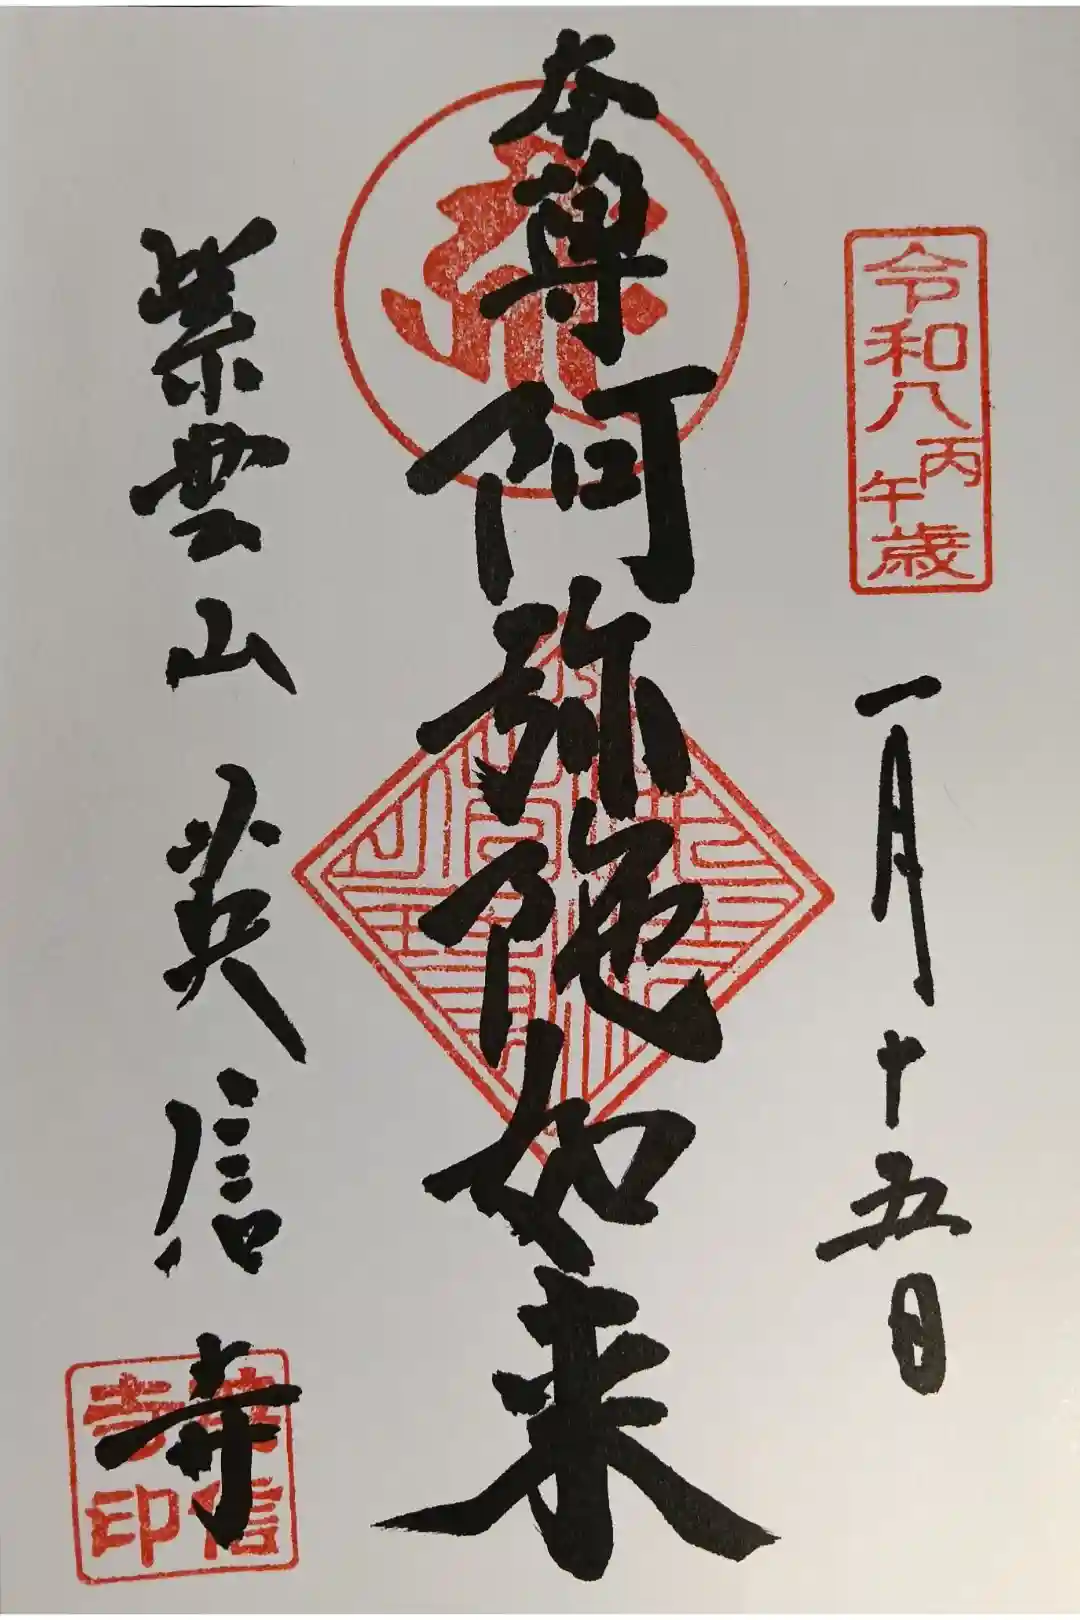 令和八丙午歳
一月十五日
本尊阿弥陀如来
紫雲山 英信寺
英信寺印